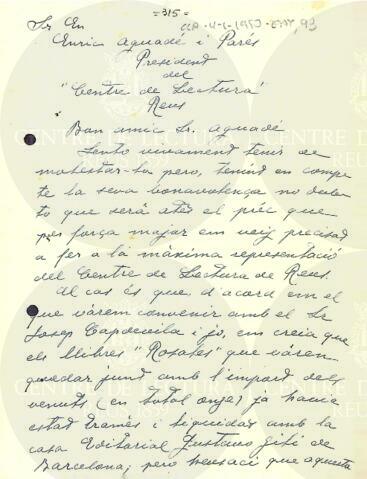 -315-
Sr En
Enric Aguadé i Parés
President
del
"Centre de Lectura"
Reus
Bon amic Sr. Aguadé
Sento vivament tenir de
molestar-lo pero, tenint en comp-
te la seva bonavolença no dub-
to que serà atès el prèc que
per força major em veig precisat
a fer a la màxima representació
del Centre de Lectura de Reus.
Al cas és que, d'acord em el
que vàrem convenir amb el Sr
Josep Capdevila i jo, em creia que
els llibres "Rosales" que vàren
quedar junt amb l'import dels
venuts (en total onze) ja havia
estat tramès i liquidat amb la
casa Editorial Gustavo Gili de
Barcelona; pero heusaci que aquesta
CENTRE DE LECTURA
REUS 1859